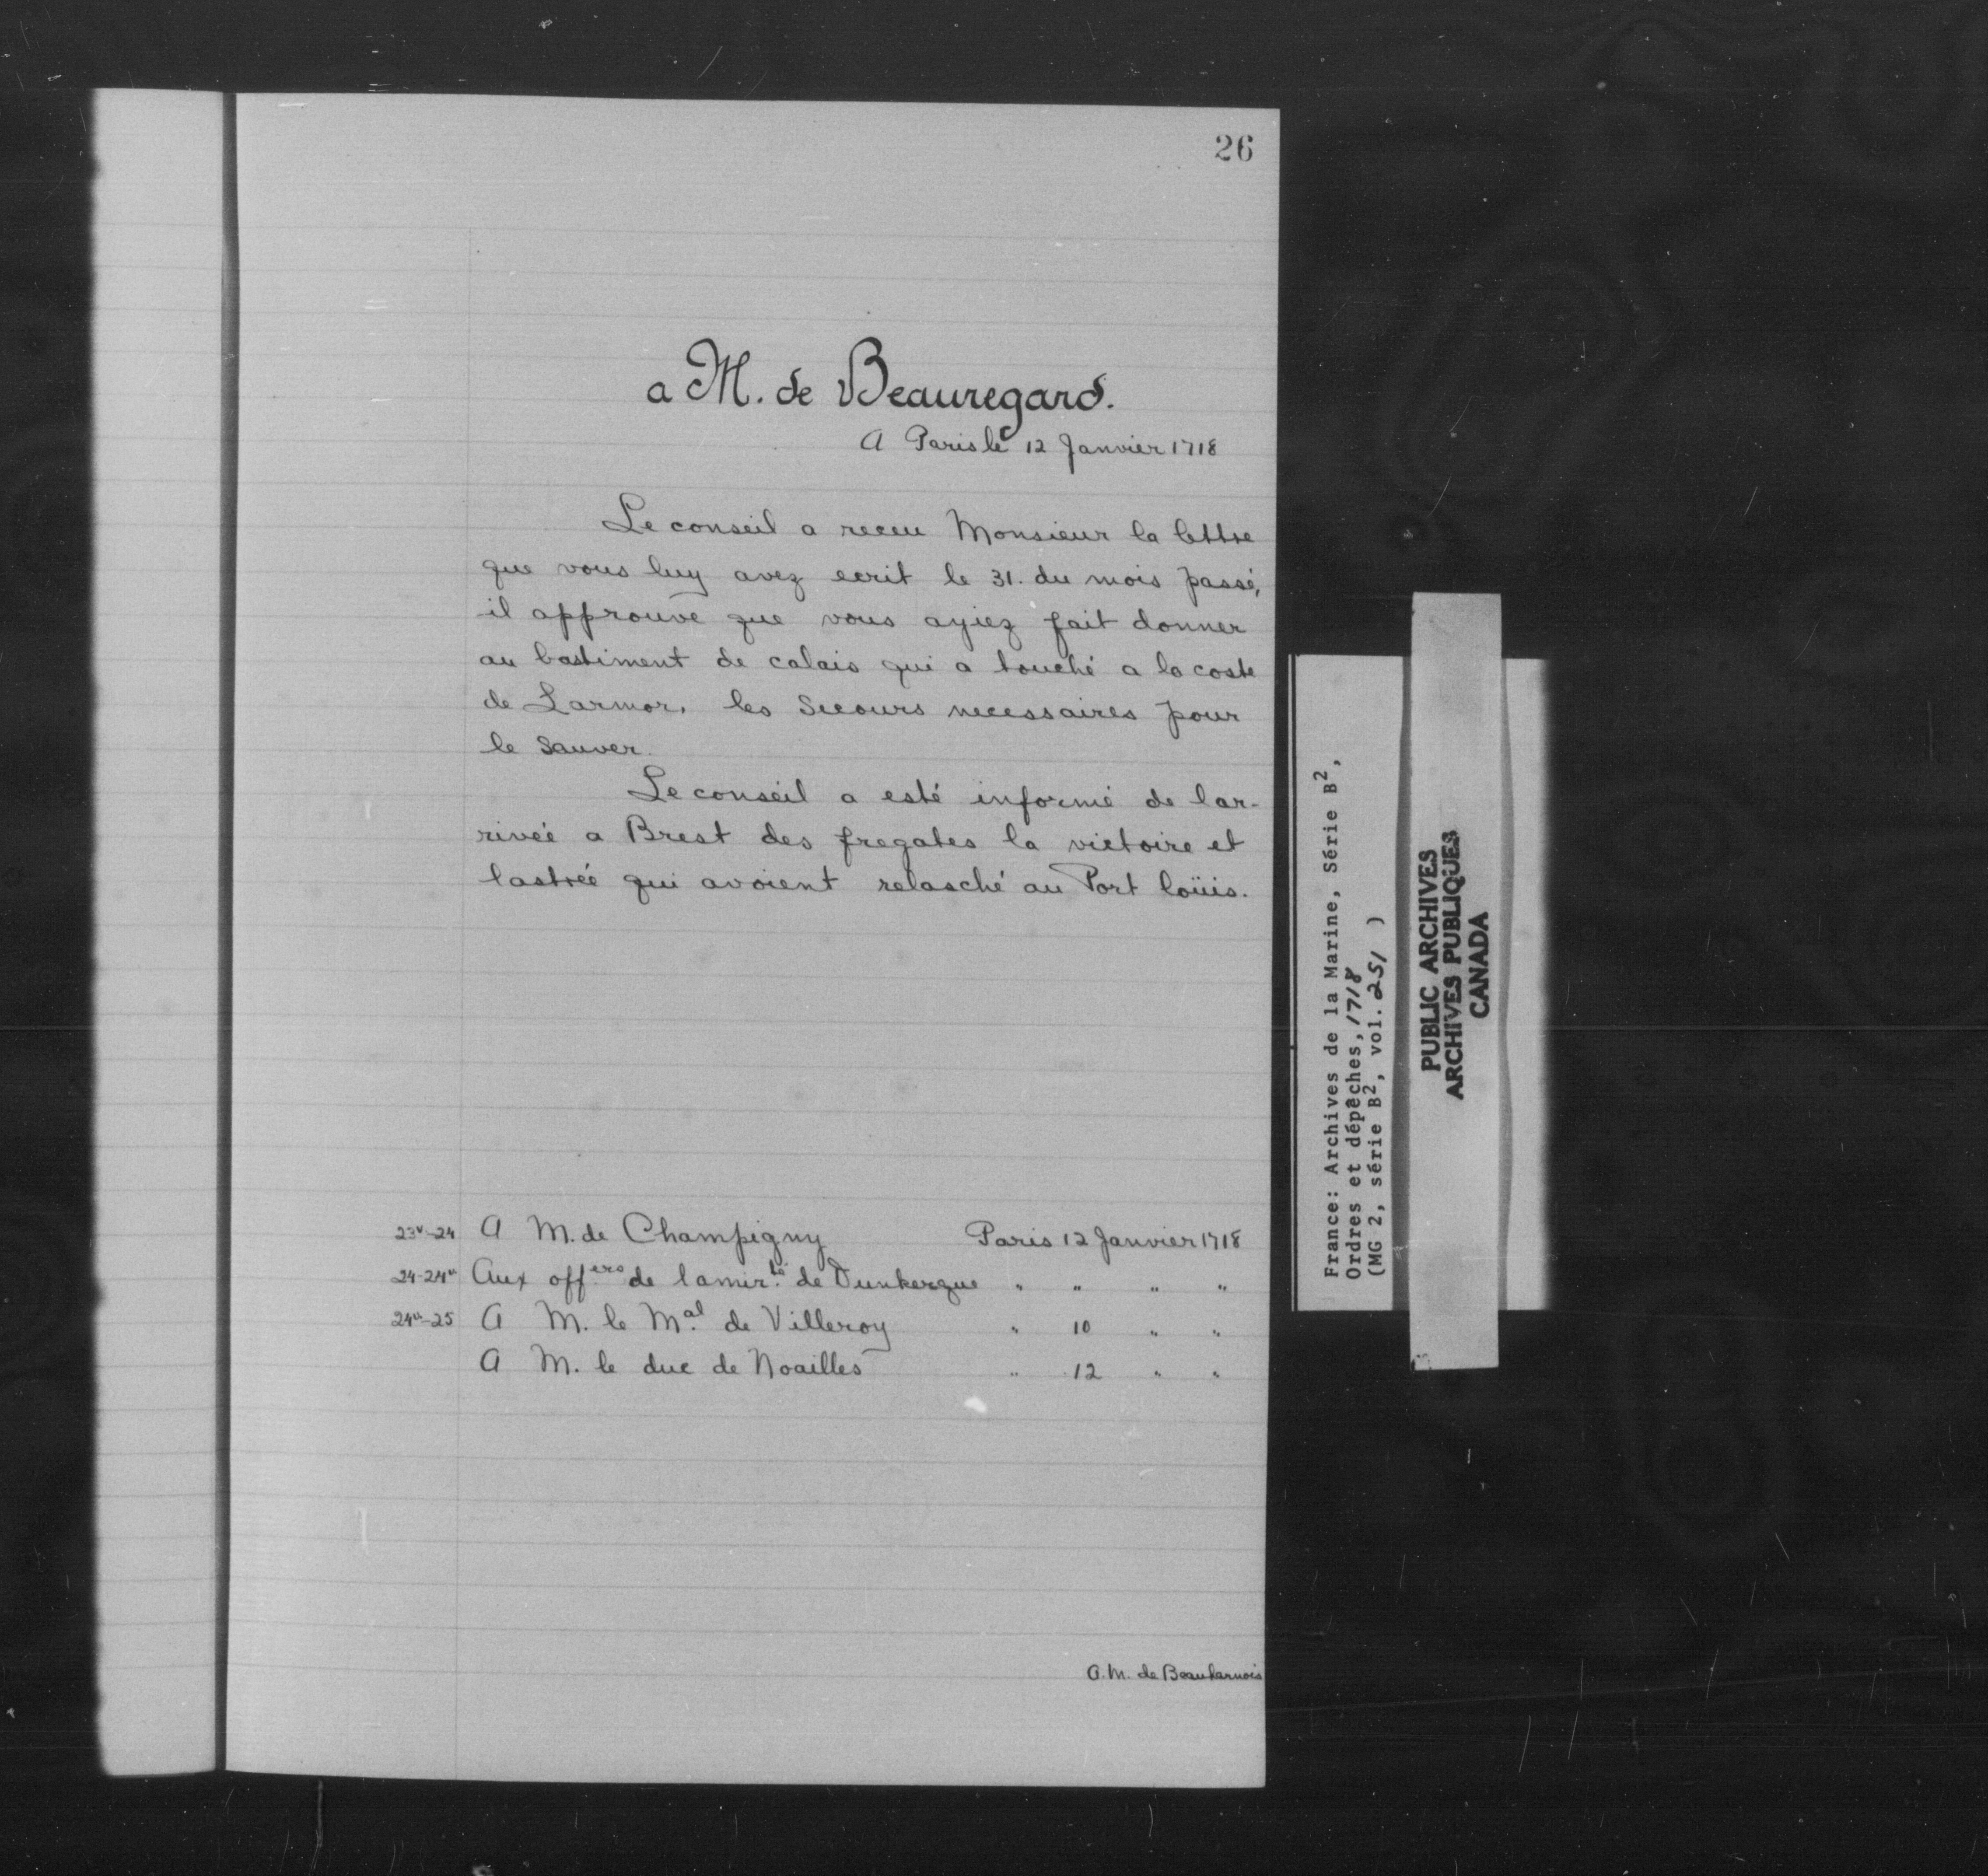 26
a M. de Beauregard.
A Paris le 12 Janvier 1718
Le conseil a receu Monsieur la lettre
que vous luy avez ecrit le 31. du mois passé,
il approuve que vous ayiez fait donner
au bastiment de calais qui a touché a la coste
de Larmor, les Secours necessaires pour
le Sauver.
Le conseil a esté informé de lar-
rivée a Brest des fregates la victoire et
lastrée qui avoient relasché au Port loüis.
23v-24 A M. de Champigny Paris 12 Janvier 1718
24-24v Aux offers de lamirté de Dunkerque " " " "
24v-25 A M. le Mal de Villeroy " 10 " "
A M. le duc de Noailles " 12 " "
A. M. de Beauharnois
France: Archives de la Marine, Série B2,
Ordres et dépêches, 1718
(MG 2, série B2, vol. 251 )
PUBLIC ARCHIVES
ARCHIVES PUBLIQUES
CANADA